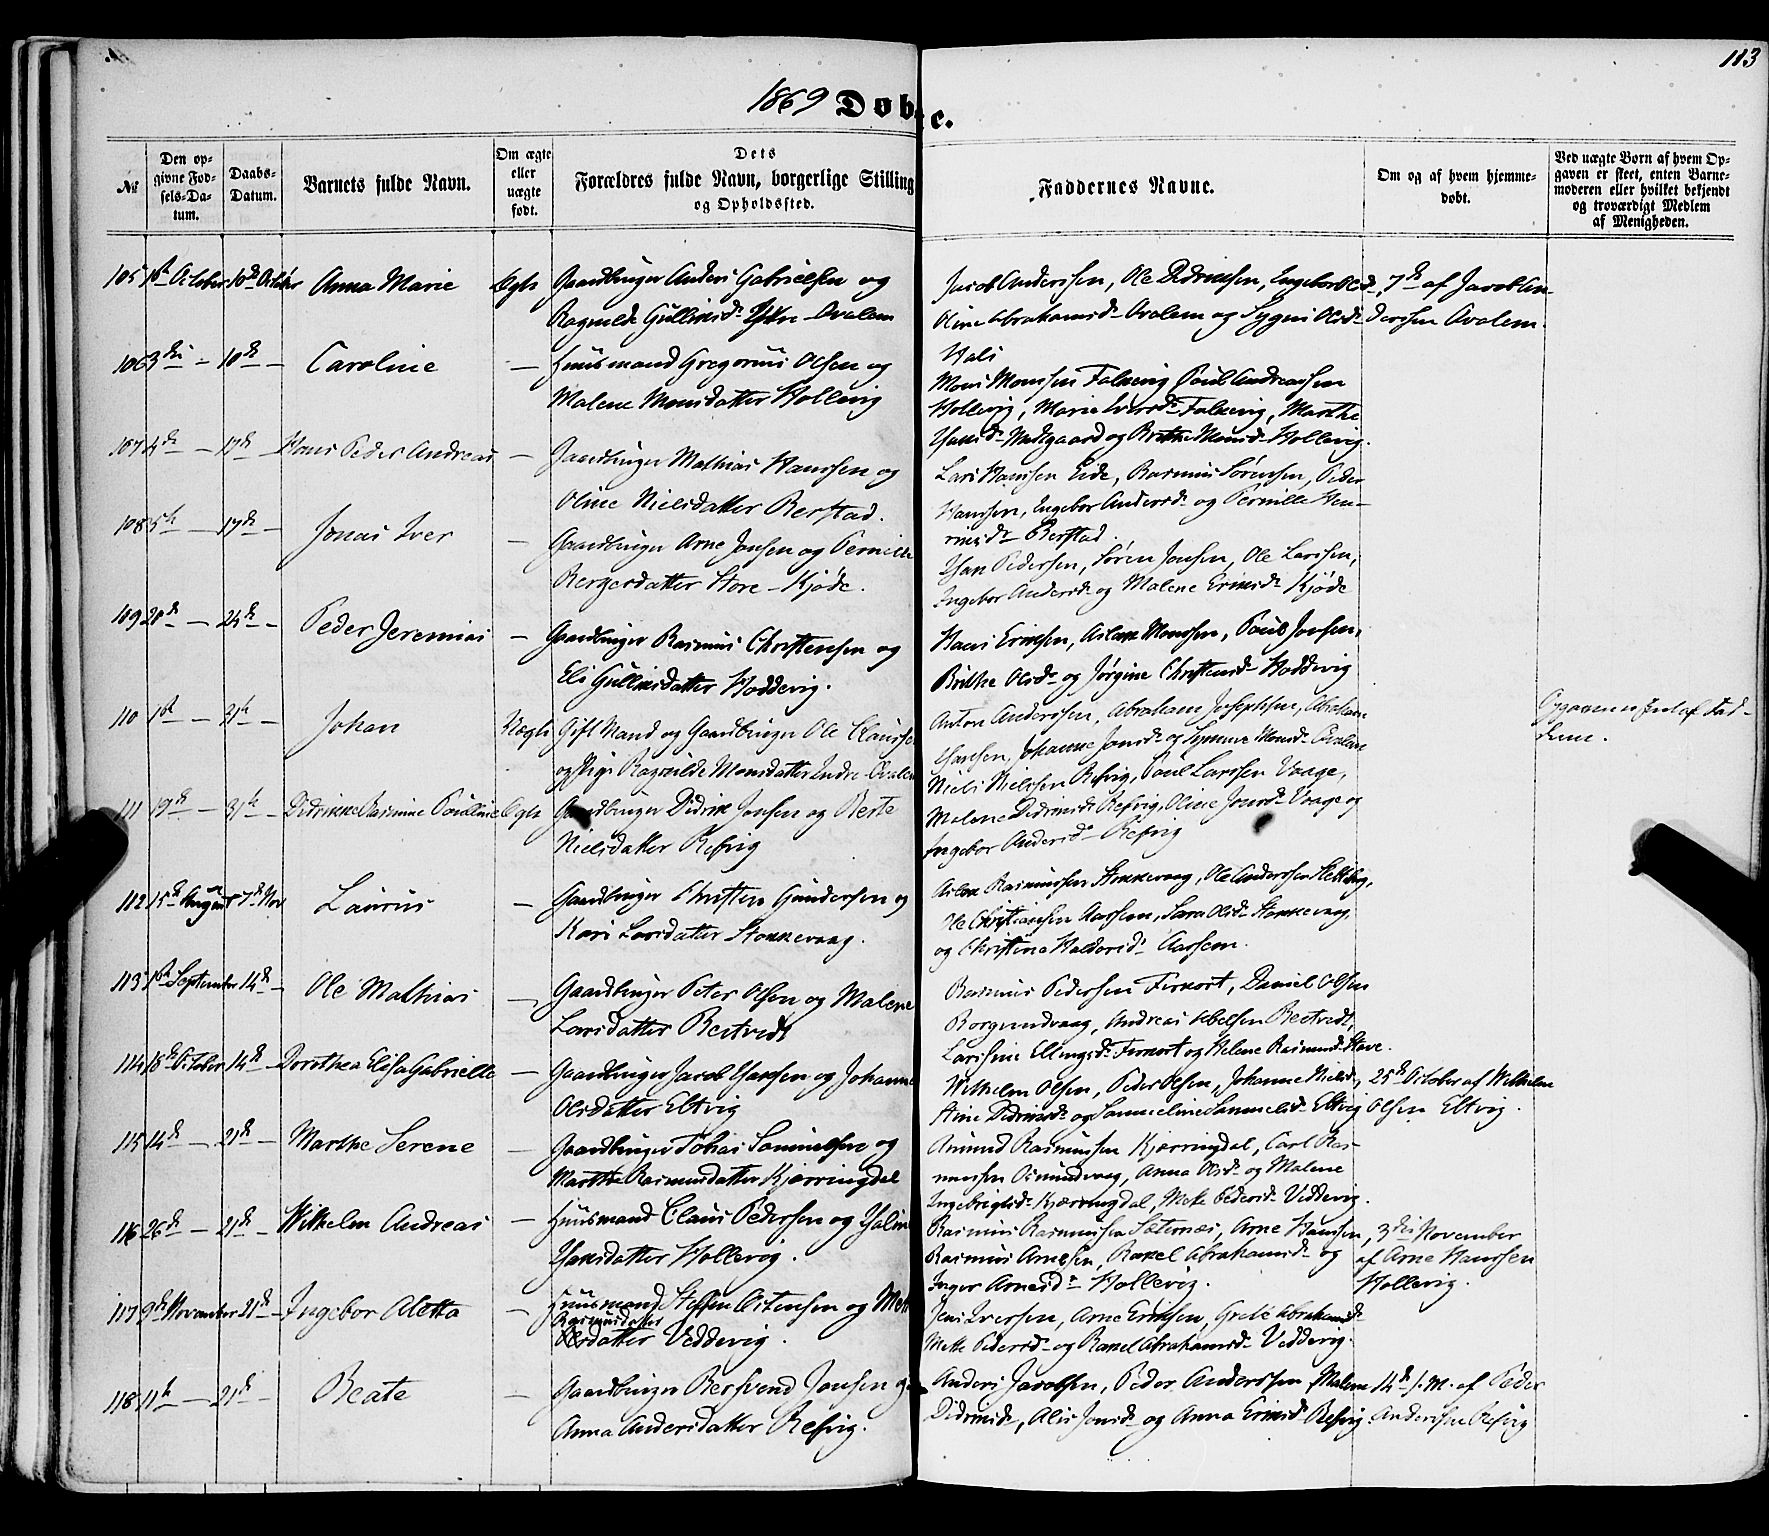 113
1869 Døbte.
№
Den op-
givne Fød-
sels-Da-
tum.
Daabs-
Datum.
Barnets fulde Navn.
Om ægte
eller
uægte
født.
Dets
Forældres fulde Navn, borgerlige Stilling
og Opholdssted.
Faddernes Navne.
Om og af hvem hjemme-
døbt.
Ved uægte Børn af hvem Op-
gaven er skeet, enten Barne-
moderen eller hvilket bekjendt
og troværdigt Medlem
af Menigheden.
105 1st October 10de October Anna Marie Ægte Gaardbruger Anders Gabrielsen og
Ragnilde Gullaksd. Ytre Ovalem
Jacob Anderssen, Ole Didriksen, Ingebor Olsd.,
Oline Abrahamsd. Ovalem og Sygni Olsd.
Hals
7de af Jacob An-
derssen Ovalem.
106 3die — 10de — Caroline — Huusmand Gregorius Olsen og
Malene Monsdatter Hollevig
Mons Monssen Falkevig Poul Andreassen
Hollevig, Marie Iversd. Falkevig, Marthe
Hansd. Nedgaard og Brithe Monsd. Hollevig.
107 4de — 17de — Hans Peder Andreas — Gaardbruger Mathias Hanssen og
Oline Nielsdatter Berstad.
Lars Hanssen Eide, Rasmus Sørenssen, Peder
Hanssen, Ingebor Andersd. og Pernille Hen-
riksd. Berstad.
108 5te — 17de — Jonas Iver — Gaardbruger Arne Jonsen og Pernille
Børgesdatter Store-Kjøde.
Hans Pedersen, Søren Jonsen, Ole Larssen,
Ingebor Andersd. og Malene Eriksd. Kjøde
109 20de — 24de — Peder Jeremias — Gaardbruger Rasmus Christensen og
Eli Gullaksdatter Hoddevig.
Hans Eriksen, Aslak Monssen, Poul Jonsen,
Brithe Olsd. og Jørgine Christensd. Hoddevig
110 1st — 31te — Johan Uægte Gift Mand og Gaardbruger Ole Claussen
og Pige Ragnilde Monsdatter Indre-Ovalem
Anton Anderssen, Abraham Josephsen, Abraham
Hanssen, Johanne Jonsd. og Synneve Monsd. Ovalem
Opgaven er skeet af Fad-
deren.
111 19de — 31te — Didrikke Rasmine Pouline Ægte Gaardbruger Didrik Jonsen og Berte
Nielsdatter Refvig
Niels Nielssen Refvig, Poul Larssen Vaage,
Malene Didriksd. Refvig, Oline Jonsd. Vaage og
Ingebor Andersd. Refvig
112 15de August 7de Nov Laurus — Gaardbruger Christen Gundersen og
Kari Larsdatter Stokkevaag.
Aslak Rasmussen Stokkevaag, Ole Anderssen
Ole Christiansen Aarsem, Sara Olsd. Stokkevaag,
og Christine Haldorsd. Aarsem.
113 1st September 14de — Ole Mathias — Gaardbruger Peter Olsen og Malene
Larsdatter Berstvedt
Rasmus Pedersen Furkort, Daniel Olsen
Borgundvaag, Andreas Abelsen Berstvedt,
Larsine Ellingsd. Furkort og Helene Rasmusd. Stave.
114 18de October 14de — Dorothea Elisa Gabrielle — Gaardbruger Jacob Hanssen og Johanne
Olsdatter Eltvig
Wilhelm Olsen, Peder Olsen, Johanne Nielsd.,
Stine Didriksd. og Sammeline Sammelsd. Eltvig
25de October af Wilhelm
Olsen Eltvig.
115 14de — 21de — Marthe Serene — Gaardbruger Tobias Samuelsen og
Marthe Rasmusdatter Kjærringdal
Amund Rasmussen Kjærringdal, Carl Ras-
mussen Osmundvaag, Anna Olsd. og Malene
Ingebrigtsd. Kjærringdal, Mette Pedersd. Veddevig.
116 26de — 21de — Wilhelm Andreas — Huusmand Claus Pedersen og
Hansdatter Hollevig.
Rasmus Rasmussen Sæternæs, Arne Hanssen,
Rasmus Arnesen, Rakel Abrahamsd. og
Inger Arnesd. Hollevig.
3die November
af Arne Hanssen
Hollevig.
117 9de November 21de — Ingebor Aletta — Huusmand Steffen Ostensen og Mette
Rasmusdatter
Olsdatter Veddevig.
Jens Iversen, Arne Eriksen, Grete Abrahamsd.
Mette Pedersd. og Rakel Abrahamsd. Veddevig.
118 11te — 21de — Beate — Gaardbruger Bersvend Jonsen og
Anna Andersdatter Refvig.
Anders Jacobsen, Peder Anderssen, Malene
Didriksd., Alis Jonsd. og Anna Eriksd. Refvig.
14de s. M. af Peder
Anderssen Refvig